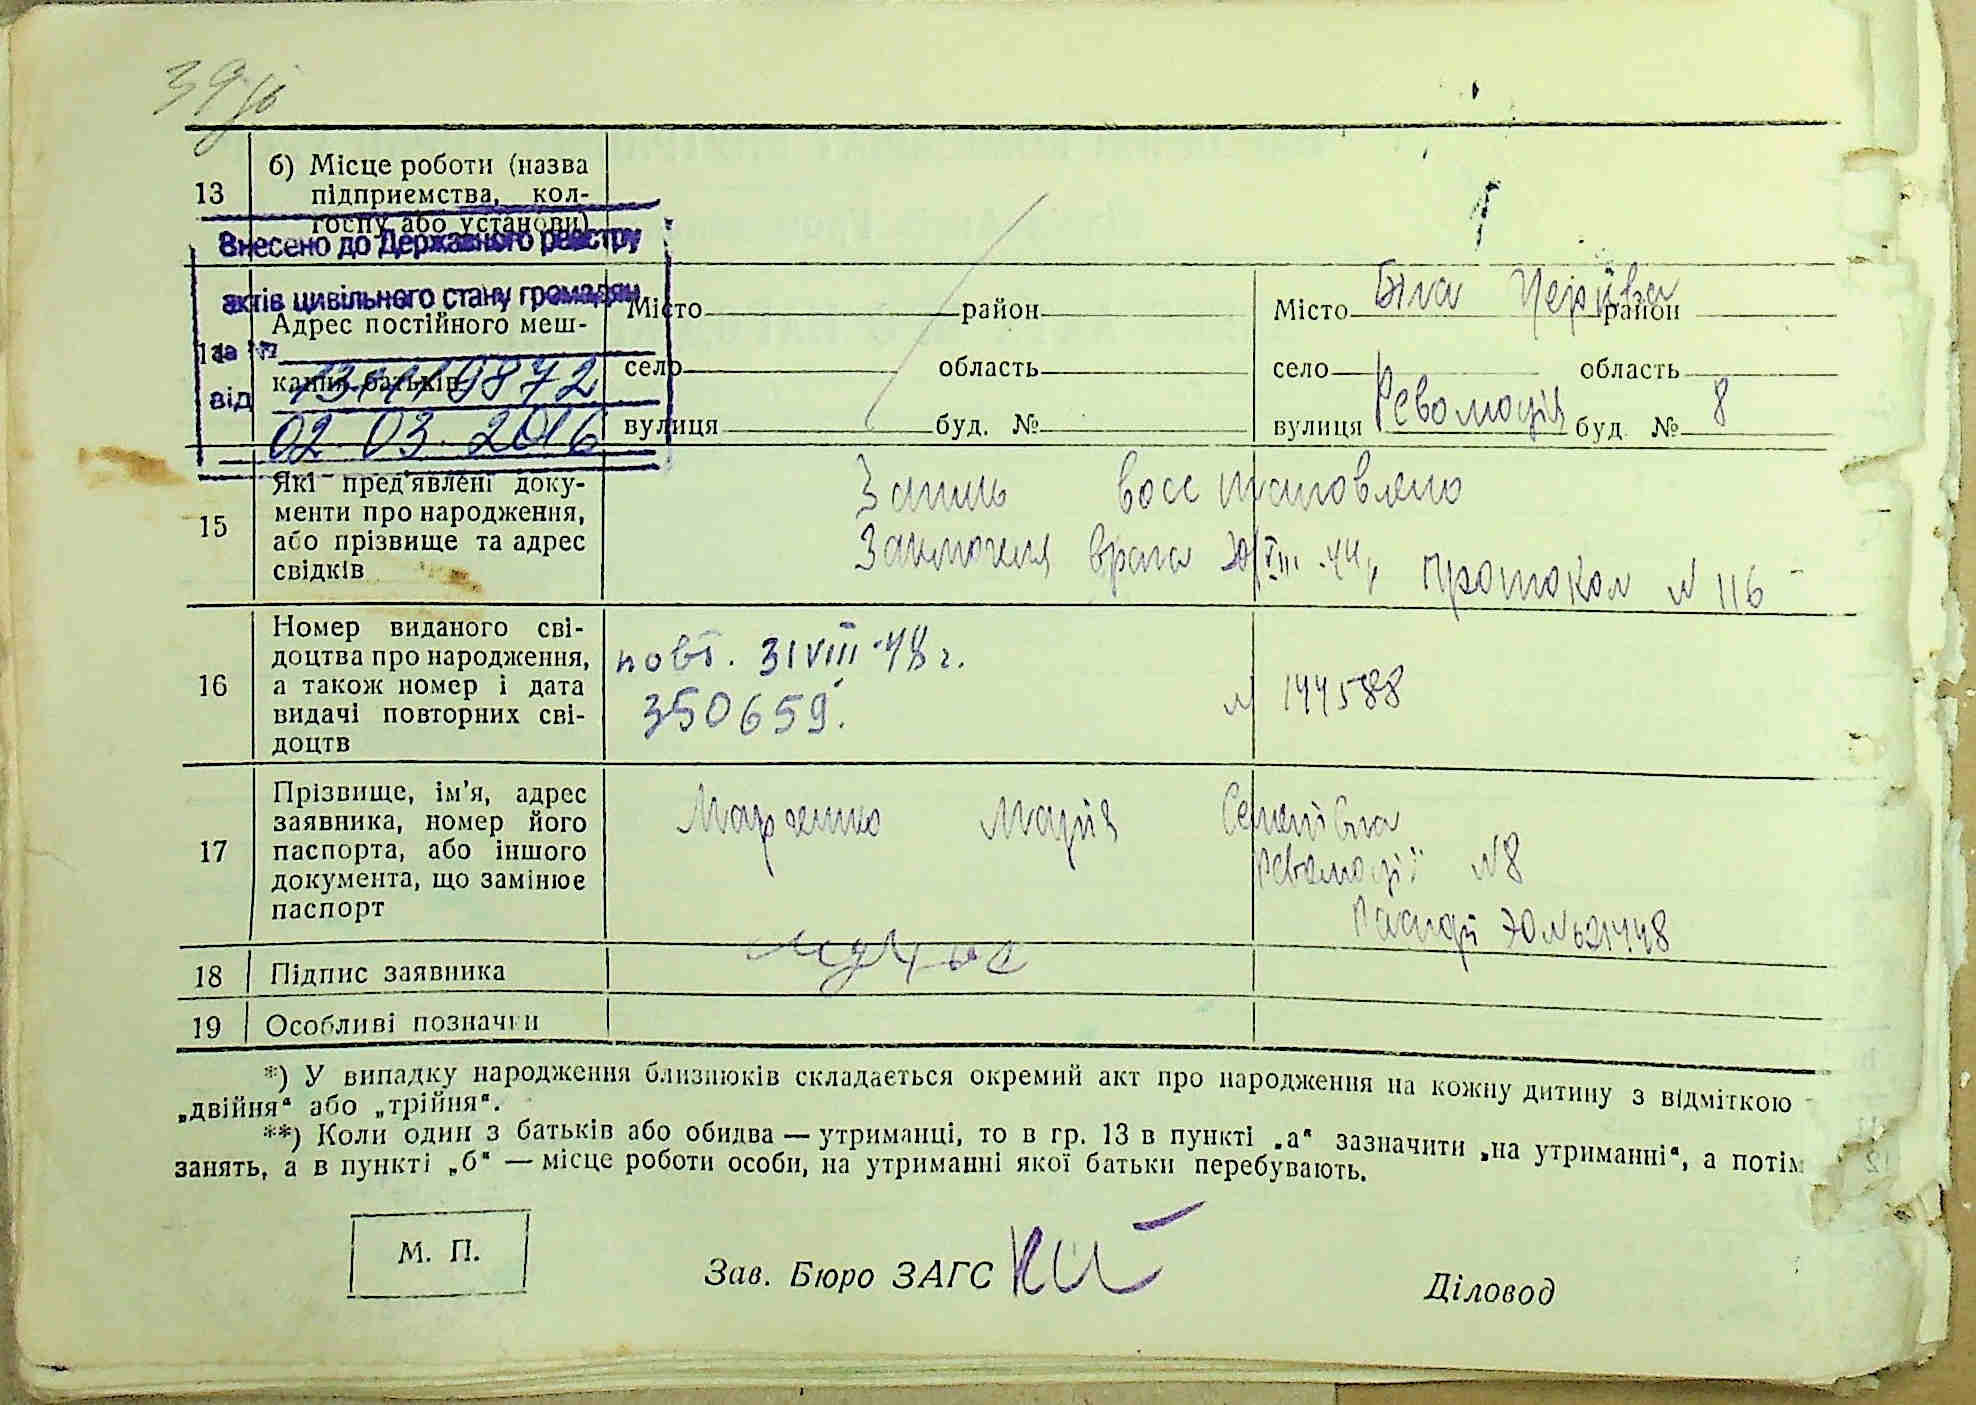 39
13
б) Місце роботи (назва
підприємства, кол-
госпу або установи)
Внесено до Державного реєстру
актів цивільного стану громадян
за №
від 02 03. 2016
14
Адрес постійного меш-
кання батьків
Місто район
село область
вулиця буд. №
Місто Біла Церква район
село область
вулиця Революції буд. № 8
15
Які пред'явлені доку-
менти про народження,
або прізвище та адрес
свідків
Запись восстановлено
Заключения врача 20/VIII-44, протокол N 116
16
Номер виданого сві-
доцтва про народження,
а також номер і дата
видачі повторних сві-
доцтв
повт. 31 VIII-48 г.
350659.
N 144588
17
Прізвище, ім'я, адрес
заявника, номер його
паспорта, або іншого
документа, що замінює
паспорт
Марченко Марія Семенівна
Революції N8
18 Підпис заявника
19 Особливі позначки
*) У випадку народження близнюків складається окремий акт про народження на кожну дитину з відміткою
„двійня“ або „трійня“.
**) Коли один з батьків або обидва — утриманці, то в гр. 13 в пункті „а“ зазначити „на утриманні“, а потім
занять, а в пункті „б“ — місце роботи особи, на утриманні якої батьки перебувають.
М. П.
Зав. Бюро ЗАГС
Діловод